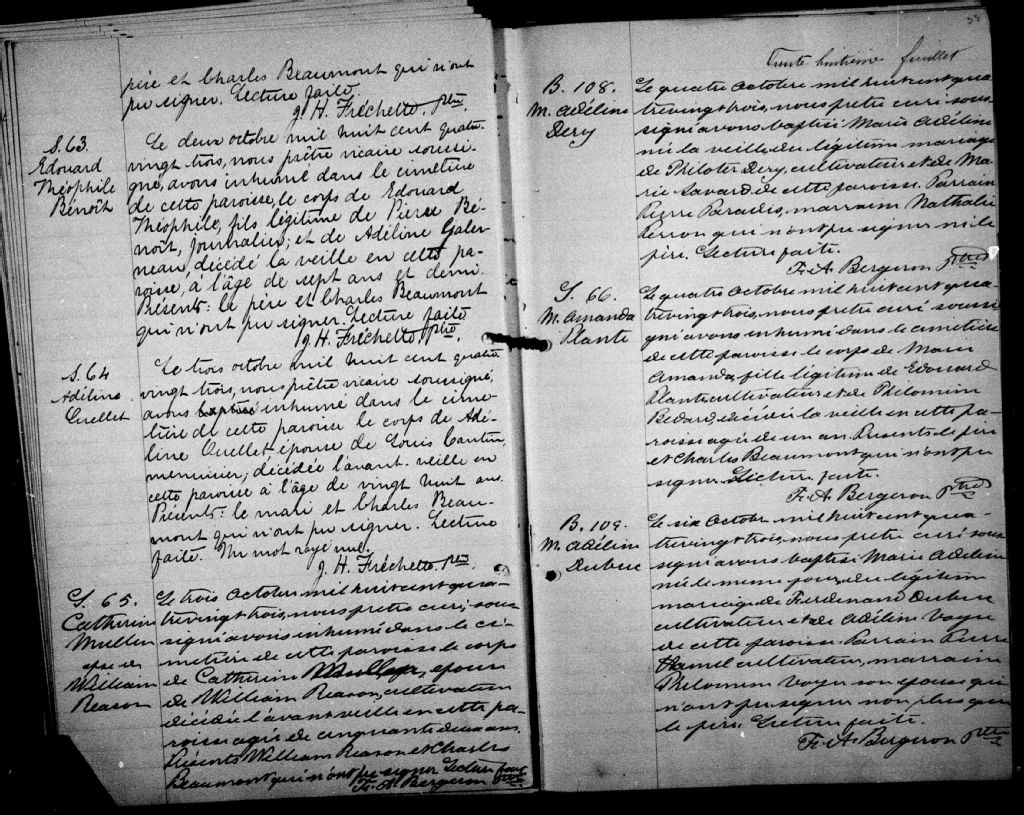 père et Charles Beaumont qui n'ont
pu signer. Lecture faite.
J. H. Fréchette, Ptre
S. 63.
Edouard
Théophile
Benoît
Le deux octobre mil huit cent quatre-
vingt trois, nous prêtre vicaire soussi-
gné, avons inhumé dans le cimetière
de cette paroisse, le corps de Edouard
Théophile, fils légitime de Pierre Be-
noît, journalier, et de Adéline Galer-
neau, décédé la veille en cette pa-
roisse, à l'âge de sept ans et demi.
Présents: le père et Charles Beaumont
qui n'ont pu signer. Lecture faite
J. H. Fréchette, Ptre.
S. 64
Adéline
Ouellet
Le trois octobre mil huit cent quatre
vingt trois, nous prêtre vicaire soussigné,
avons baptisé inhumé dans le cime-
tière de cette paroisse le corps de Adé-
line Ouellet épouse de Louis Cantin,
menuisier, décédée l'avant-veille en
cette paroisse à l'âge de vingt huit ans.
Présents: le mari et Charles Beau-
mont qui n'ont pu signer. Lecture
faite. Un mot rayé nul.
J. H. Fréchette Ptr.
S. 65.
Catherine
Mullen
epse de
William
Reason
Le trois Octobre mil huit cent qua-
trevingt trois, nous pretre curé, sous-
signé avons inhumé dans le ci-
metière de cette paroisse le corps
de Catherine, epouse
de William Reason, cultivateur
décédée l'avant veille en cette pa-
roisse agée de cinquante deux ans.
Présents William Reason et Charles
Beaumont qui n'ont pu signer Lecture faite
F. A. Bergeron Ptre
38
Trente huitième feuillet
B. 108.
M. Adéline
Dery
Le quatre Octobre mil huit cent qua-
trevingt trois, nous pretre curé sous-
signé avons baptisé Marie Adéline
née la veille du légitime mariage
de Philoter Dery, cultivateur et de Ma-
rie Savard de cette paroisse. Parrain
Pierre Paradis, marraine Nathalie
Perron qui n'ont pu signer ni le
père. Lecture faite.
F. A. Bergeron Ptre
S. 66.
M. Amanda
Plante
Le quatre Octobre mil huit cent qua-
trevingt trois, nous pretre curé soussi-
gné avons inhumé dans le cimetière
de cette paroisse le corps de Marie
Amanda, fille légitime de Edouard
Plante cultivateur et de Philomène
Bedard, décédée la veille en cette pa-
roisse agée de un an. Presents le père
et Charles Beaumont qui n'ont pu
signer. Lecture faite.
F. A. Bergeron Ptre
B. 109.
M. Adéline
Dubuc
Le six Octobre mil huit cent qua-
trevingt trois, nous pretre curé sous-
signé avons baptisé Marie Adéline
née le meme jour, du légitime
mariage de Ferdinand Dubuc
cultivateur et de Adéline Voyer
de cette paroisse. Parrain Pierre
Hamel cultivateur, marraine
Philomene Voyer son epouse qui
n'ont pu signer non plus que
le père. Lecture faite.
F. A. Bergeron Ptre